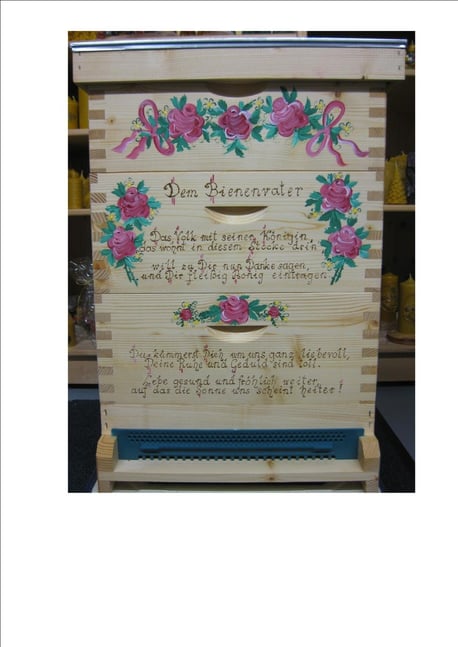 Dem Bienenvater
Das Volk mit seiner Königin,
das wohnt in diesem Stocke drin
will zu Dir nun Danke sagen,
und Dir fleißig Honig eintragen.
Du kümmerst Dich um uns ganz liebevoll,
Deine Ruhe und Geduld sind toll.
Lebe gesund und fröhlich weiter,
auf das die Sonne uns scheint heiter!